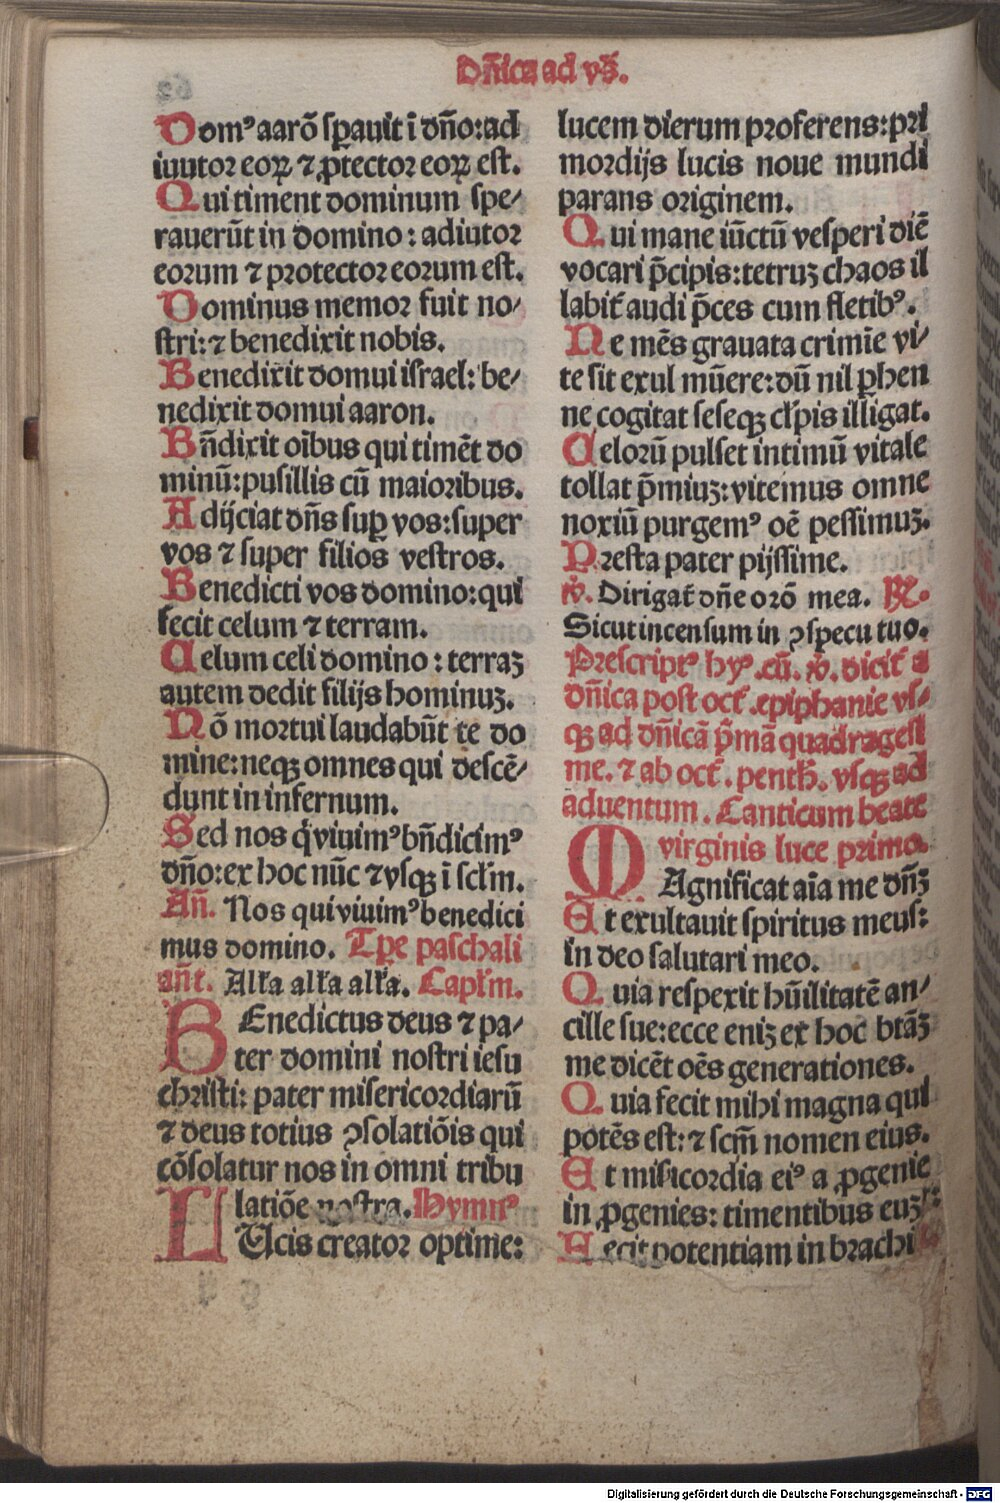 Dñica ad vs̃.
Domꝰ aarõ sꝑauit ĩ dño: ad
iuutor eoꝝ ⁊ ꝓtector eoꝝ est.
Qui timent dominum spe/
rauerũt in domino: adiutor
eorum ⁊ protector eorum est.
Dominus memor fuit no/
stri: ⁊ benedixit nobis.
Benedixit domui israel: be/
nedixit domui aaron.
Bñdixit oĩbus qui timẽt do
minũ: pusillis cũ maioribus.
Adijciat dñs suꝑ vos: super
vos ⁊ super filios vestros.
Benedicti vos domino: qui
fecit celum ⁊ terram.
Celum celi domino: terraʒ
autem dedit filijs hominuʒ.
Nõ mortui laudabũt te do
mine: neqʒ omnes qui descẽ/
dunt in infernum.
Sed nos q̇ viuimꝰ bñdicimꝰ
dño: ex hoc nũc ⁊ vsqʒ ĩ scĺm.
Añ. Nos qui viuimꝰ benedici
mus domino. Tꝑe paschali
añt. Alĺa alĺa alĺa. Capĺm.
BEnedictus deus ⁊ pa/
ter domini nostri iesu
christi: pater misericordiarũ
⁊ deus totius ꝯsolatiõis qui
cõsolatur nos in omni tribu
latiõe nostra. Hymnꝰ
LUcis creator optime:
lucem dierum proferens: pri
mordijs lucis noue mundi
parans originem.
Qui mane iũctũ vesperi diẽ
vocari p̃cipis: tetruʒ chaos il
labit̃ audi p̃ces cum fletibꝰ.
Ne mẽs grauata crimĩe vi/
te sit exul mũere: dũ nil ꝑhen
ne cogitat seseqʒ cĺpis illigat.
Celorũ pulset intimũ vitale
tollat p̃miuʒ: vitemus omne
noxiũ purgemꝰ oẽ pessimuʒ.
Presta pater pijssime.
℣. Dirigat̃ dñe orõ mea. ℟.
Sicut incensum in ꝯspecu tuo.
Prescriptꝰ hyꝰ. cũ. ℣. dicit̃ a
dñica post oct̃. epiphanie vs/
qʒ ad dñicã p̃mã quadragesi
me. ⁊ ab oct̃. penth̃. vsqʒ ad
aduentum. Canticum beate
virginis luce primo.
MAgnificat aĩa me dñʒ
Et exultauit spiritus meus:
in deo salutari meo.
Quia respexit hũilitatẽ an/
cille sue: ecce eniʒ ex hoc btãʒ
me dicẽt oẽs generationes.
Quia fecit mihi magna qui
potẽs est: ⁊ scm̃ nomen eius.
Et misicordia eiꝰ a ꝓgenie
in ꝓgenies: timentibus euʒ
Fecit potentiam in brachi
Digitalisierung gefördert durch die Deutsche Forschungsgemeinschaft - DFG